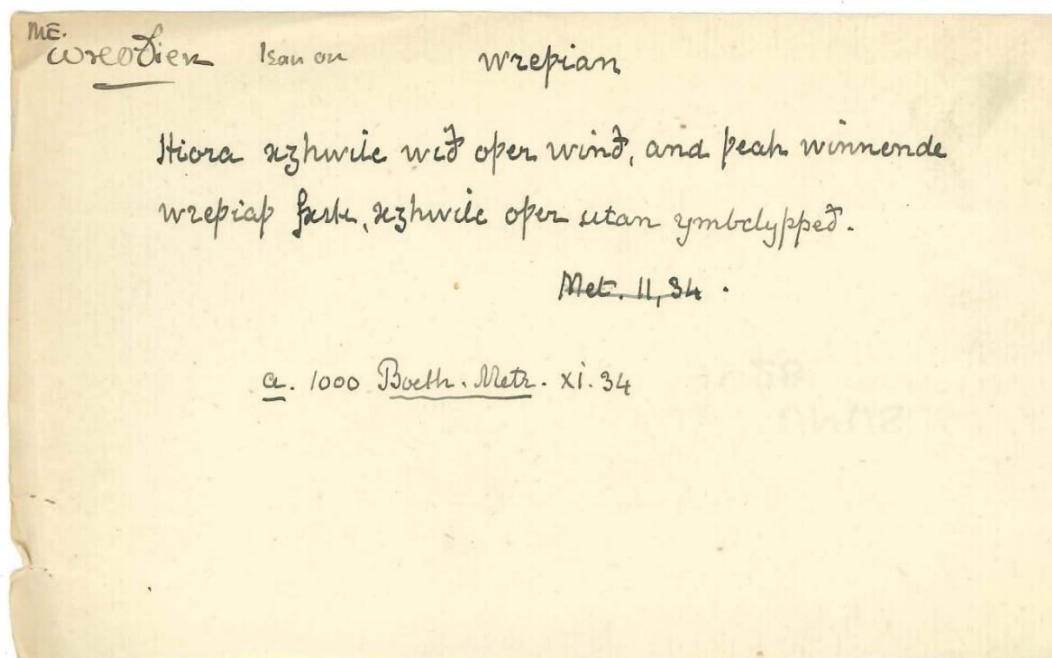 ME.
wreoðien wreþian
Hiora æȝhwilc wið oþer winð, and þeah winnende
wreþiaþ fæste, æȝhwilc oþer utan ymbclyppeð.
Met. 11,34 .
a. 1000 Boeth. Metr. xi. 34